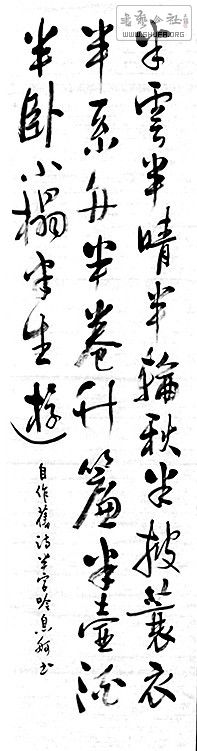 書藝公社
WWW.SHUFA.ORG
半雲半晴半輪秋半披蓑衣
半系舟半卷竹簾半壺酒
半卧小榻半生遊
自作舊詩半字吟息书